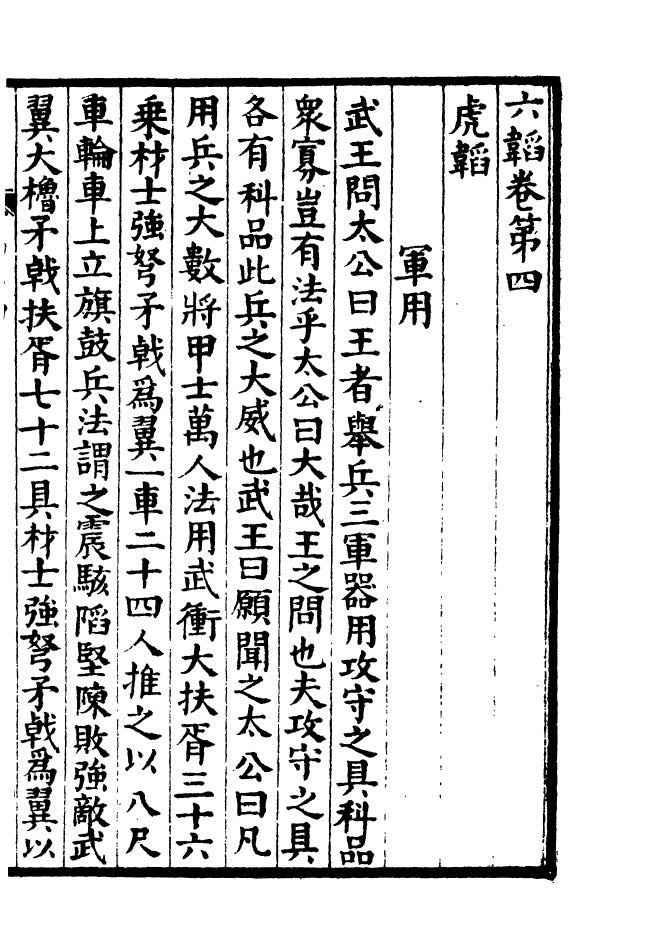 六韜卷第四
虎韜
軍用
武王問太公曰王者舉兵三軍器用攻守之具科品
衆寡豈有法乎太公曰大哉王之問也夫攻守之具
各有科品此兵之大威也武王曰願聞之太公曰凡
用兵之大數將甲士萬人法用武衝大扶胥三十六
乗材士強弩矛戟爲翼一車二十四人推之以八尺
車輪車上立旗鼓兵法謂之震駭陷堅陳敗強敵武
翼大櫓矛戟扶胥七十二具材士強弩矛戟爲翼以